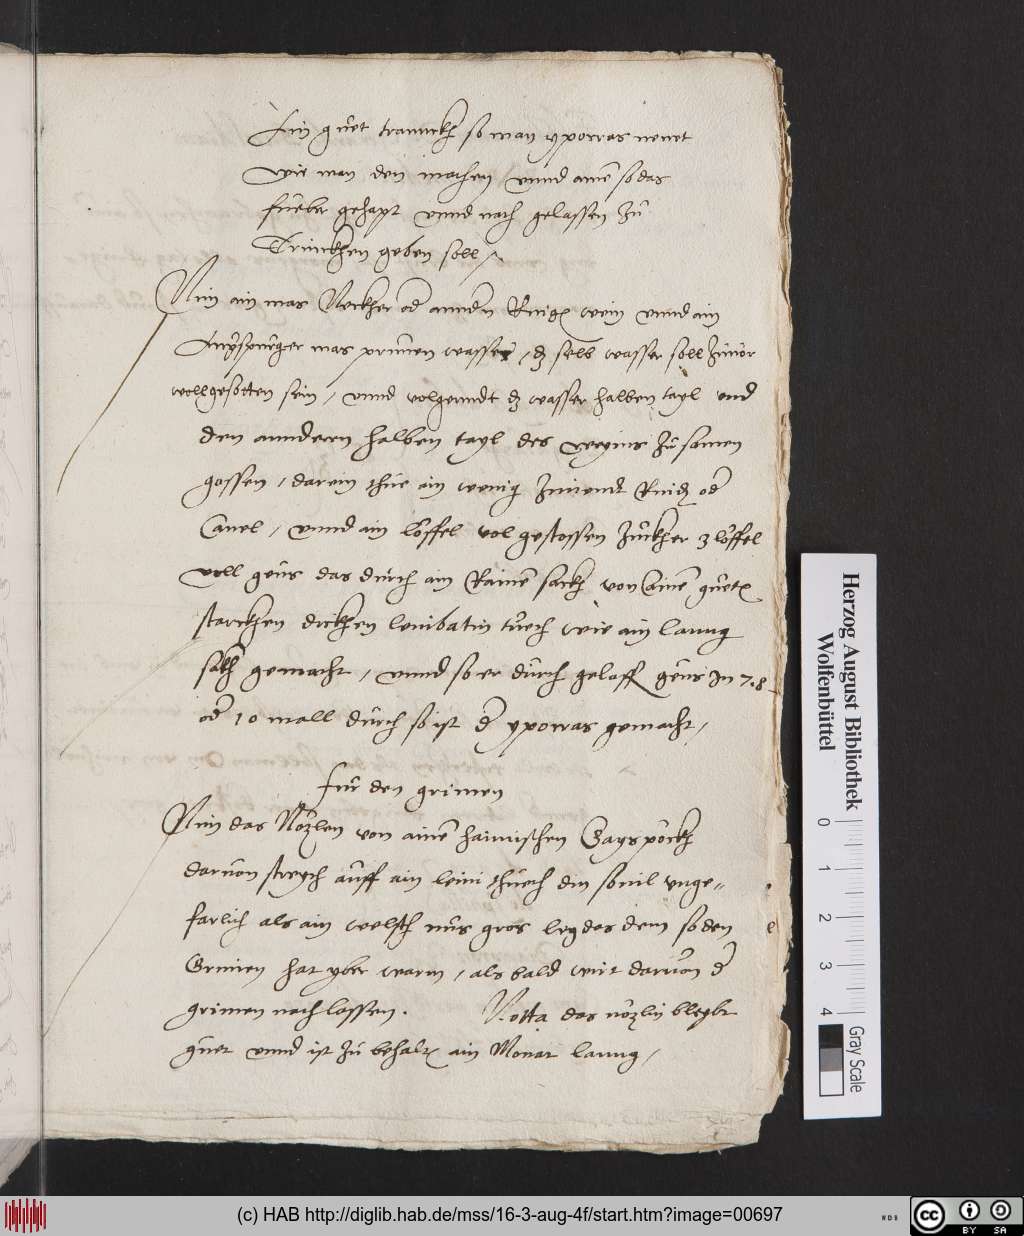 Ein guet tranckh so man ypocras nenet
wie man den machen vnnd aine so das
fueber gehapt vnnd nach gelassen zu
Trinckhen geben soll
Nim ain mas Neckher od anndn wein vnnd ain
mas prunen wasser, dz selb wasser soll zuuor
wollgesotten sein, vnnd volgenndt dz wasser halben tayl vnd
den anndern halben tayl des weyns zu samen
gossen, darein thue ain wenig Zimendt od
Canel, vnnd ain löffel vol gestossen zuckher 3 löffel
voll geus das durch ain Rainē sackh von ainē guetē
starckhen dickhen tuech wie ain lanng
sackh gemacht, vnnd so er durch gelaff geus in 7.8
od 10 mall durch so ist d ypocras gemacht,
fur den grimen
Nim das von ainē haimischen Gayspöckh
daruon streych auff ain leini thuech din souil vnge-
farlich als ain welsch nus gros leg das dem so den
Grimen hat yber warm, als bald wirt daruon d
grimen nach lassen. Notta das bleybt
guet vnnd ist zu behaltē ain Monat lanng,
Herzog August Bibliothek
Wolfenbüttel
0 1 2 3 4
Gray Scale
(c) HAB http://diglib.hab.de/mss/16-3-aug-4f/start.htm?image=00697
WDB
cc BY SA